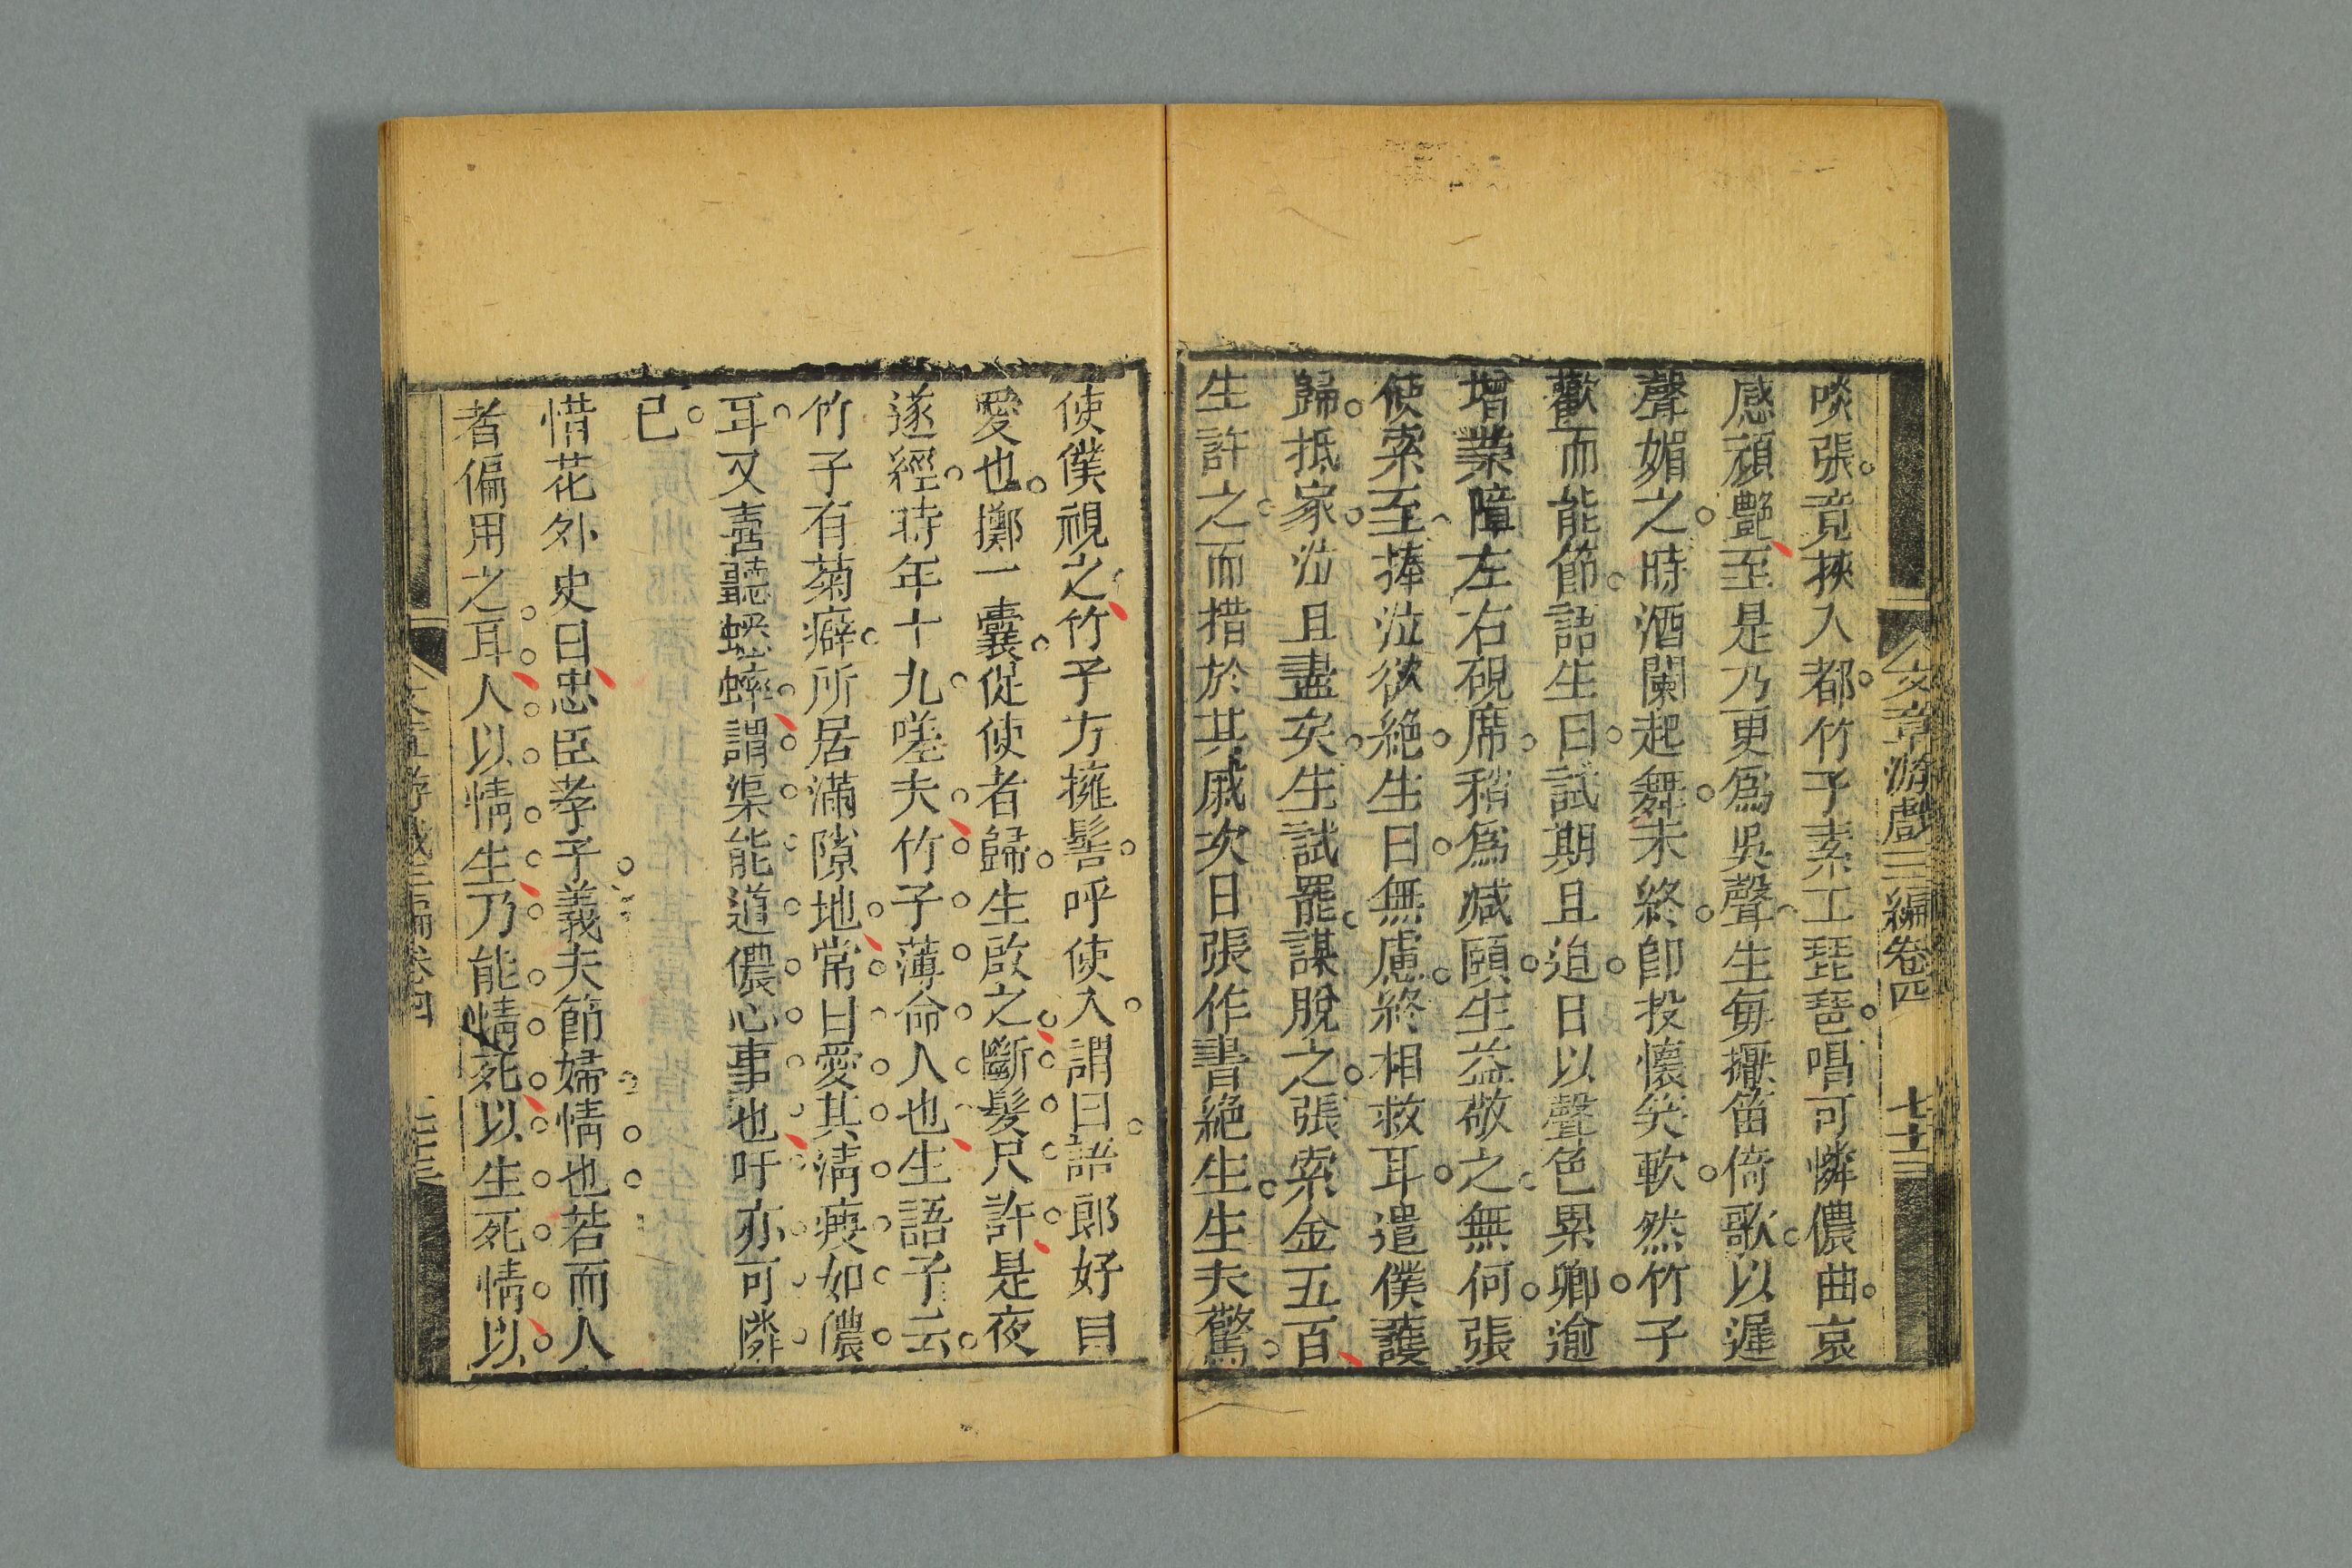 文章游戲三編卷四 七十三
啖張竟挾入都竹子素工琵琶唱可憐儂曲哀
感頑艷至是乃更爲吳聲生每擫笛倚歌以遲
聲媚之時酒闌起舞未終卽投懷笑軟然竹子
歡而能節語生曰試期且迫日以聲色累卿逾
增業障左右硯席稍爲減頤生益敬之無何張
使索至捧泣欲絶生曰無慮終相救耳遣僕護
歸抵家泣且盡矣生試罷謀脫之張索金五百
生許之而措於其戚次日張作書絶生生夫驚
使僕視之竹子方擁髻呼使入謂曰語郎好目
愛也擲一囊促使者歸生啟之斷髮尺許是夜
遂經時年十九嗟夫竹子薄命人也生語子云
竹子有菊癖所居滿隙地常曰愛其淸痩如儂
耳又喜聽蟋蟀謂渠能道儂心事也吁亦可憐
已
惜花外史曰忠臣孝子義夫節婦情也若而人
者偏用之耳人以情生乃能情死以生死情以
文章游戲三編卷四